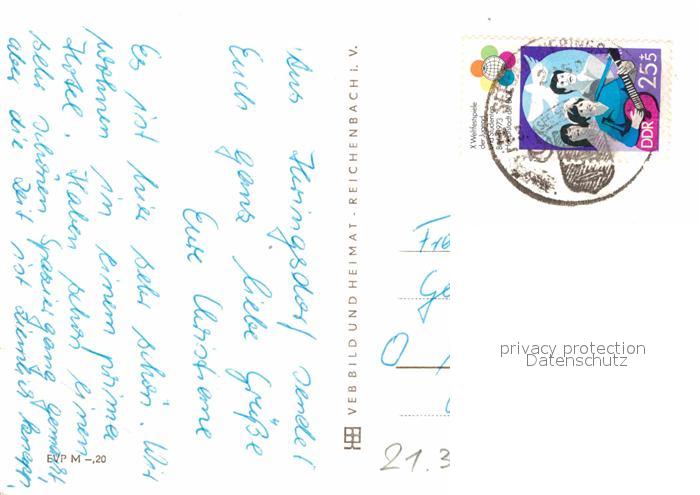 Aus Heringsdorf sendet
Euch ganz liebe Grüße
Eure Christiane
Es ist hier sehr schön. Wir
wohnen in einem prima
Hotel. Haben schon einen
sehr schönen Spaziergang gemacht,
aber die Zeit ist ziemlich knapp.
EVP M –,20
VEB BILD UND HEIMAT · REICHENBACH i. V.
X. Weltfestspiele
der Jugend
und Studenten
Berlin 1973
Hauptstadt der DDR
DDR
25+5
Ge
O
21.3
privacy protection
Datenschutz